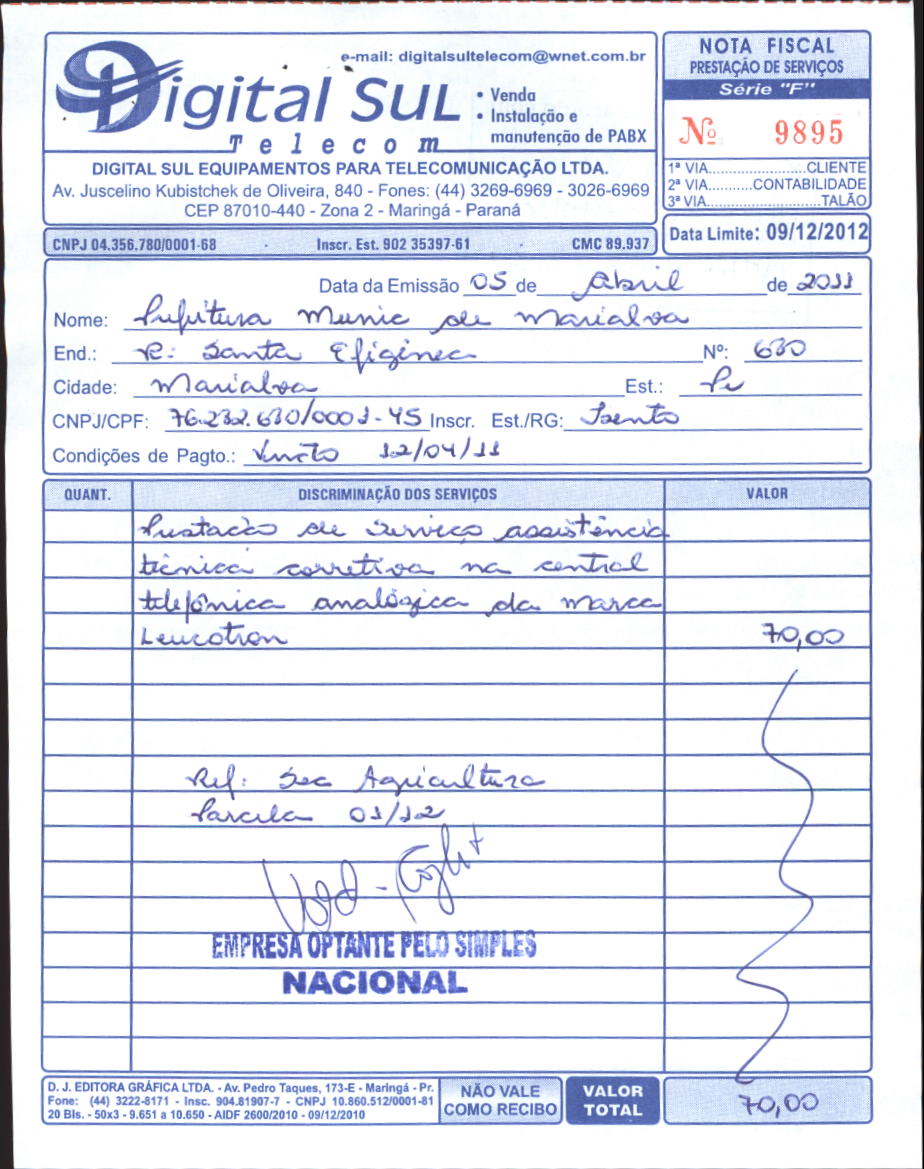 e-mail: digitalsultelecom@wnet.com.br
Digital Sul
Telecom
• Venda
• Instalação e
manutenção de PABX
DIGITAL SUL EQUIPAMENTOS PARA TELECOMUNICAÇÃO LTDA.
Av. Juscelino Kubistchek de Oliveira, 840 - Fones: (44) 3269-6969 - 3026-6969
CEP 87010-440 - Zona 2 - Maringá - Paraná
CNPJ 04.356.780/0001-68 Inscr. Est. 902 35397-61 CMC 89.937
NOTA FISCAL
PRESTAÇÃO DE SERVIÇOS
Série "F"
Nº 9895
1ª VIA......................CLIENTE
2ª VIA..........CONTABILIDADE
3ª VIA.........................TALÃO
Data Limite: 09/12/2012
Data da Emissão 05 de Abril de 2011
Nome: Prefeitura Munic de Marialva
End.: R: Santa Efigênea Nº: 630
Cidade: Marialva Est.: Pr
CNPJ/CPF: 76.232.630/0001-45 Inscr. Est./RG: Isento
Condições de Pagto.: Vencto 12/04/11
QUANT. DISCRIMINAÇÃO DOS SERVIÇOS VALOR
Prestacão de Serviço assistência
técnica corretiva na central
telefônica analógica da marca
Leucotron 70,00
Ref: Sec Agricultura
Parcela 01/12
EMPRESA OPTANTE PELO SIMPLES
NACIONAL
D. J. EDITORA GRÁFICA LTDA. - Av. Pedro Taques, 173-E - Maringá - Pr.
Fone: (44) 3222-8171 - Insc. 904.81907-7 - CNPJ 10.860.512/0001-81
20 Bls. - 50x3 - 9.651 a 10.650 - AIDF 2600/2010 - 09/12/2010
NÃO VALE
COMO RECIBO
VALOR
TOTAL
70,00